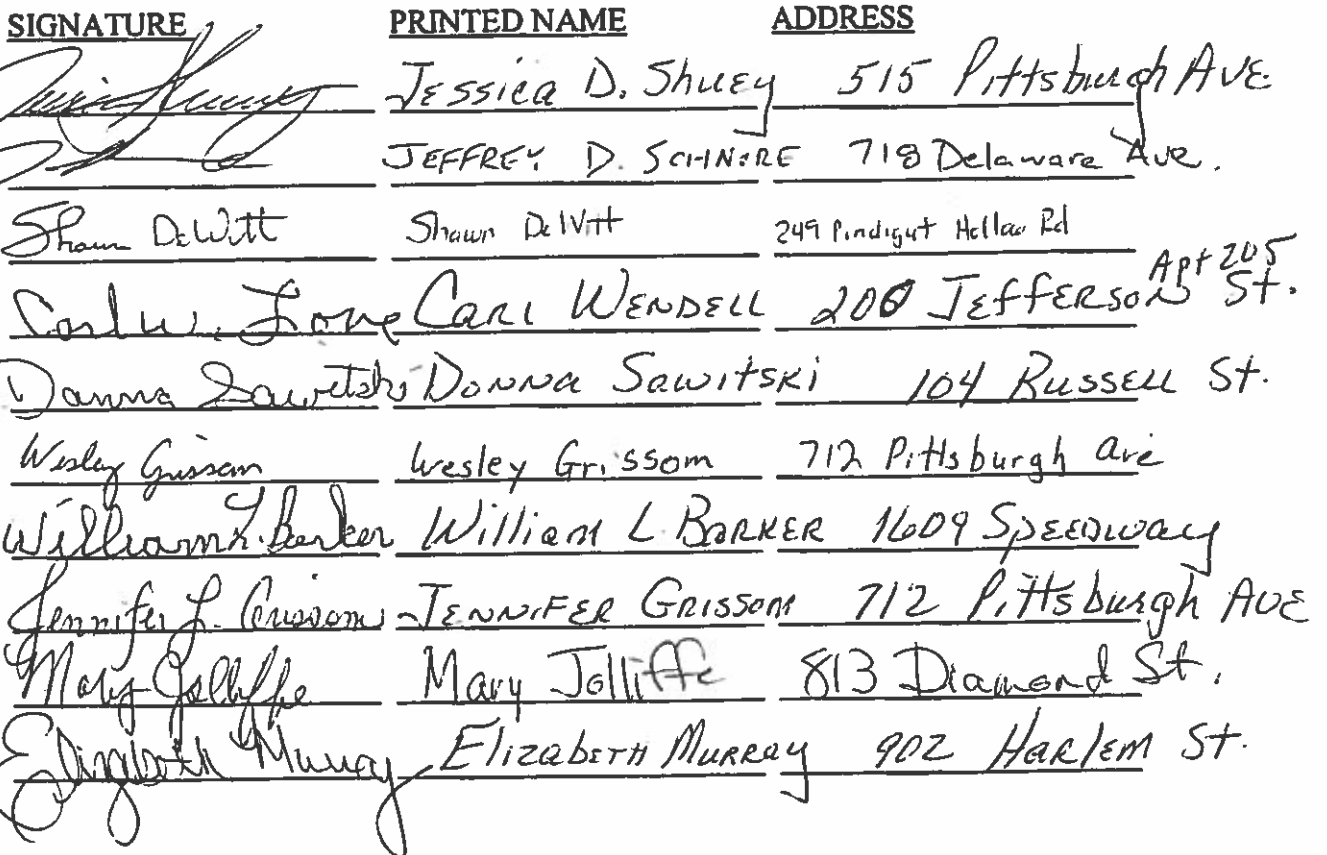 SIGNATURE PRINTED NAME ADDRESS
Jessica D. Shuey 515 Pittsburgh AVE
JEFFREY D. SCHNORE 718 Delaware Ave.
Shawn DeWitt Shawn DeWitt 249 Pindigut Hollow Rd
Carl W. Love CARL WENDELL 200 JEFFERSON St. Apt 205
Donna Sawitski DONNA SAWITSKI 104 RUSSELL St.
Wesley Grissom Wesley Grissom 712 Pittsburgh ave
William L. Barker William L BARKER 1609 SPEEDWAY
Jennifer L. Grissom JENNIFER GRISSOM 712 Pittsburgh AVE
Mary Jolliffe Mary Jolliffe 813 Diamond St.
Elizabeth Murray Elizabeth MURRAY 902 Harlem St.